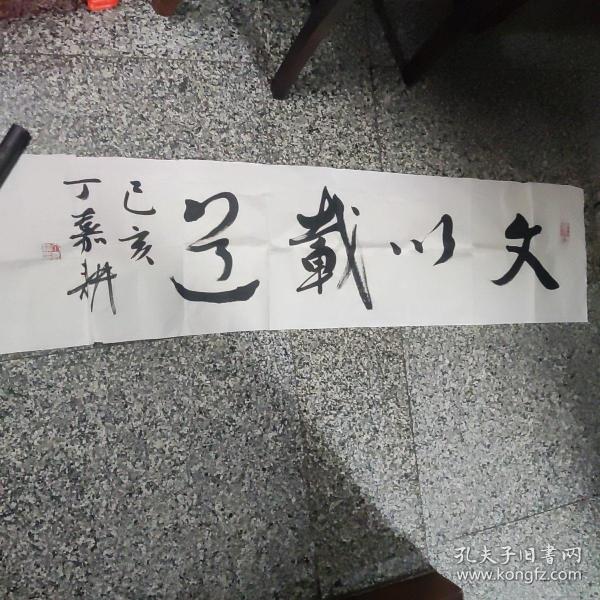 文以載道
己亥
丁嘉耕
孔夫子旧書网
www.kongfz.com